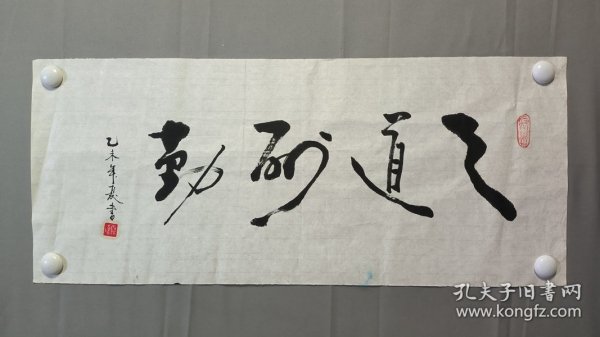 天道酬勤
乙未年夏书
孔夫子旧书网
www.kongfz.com